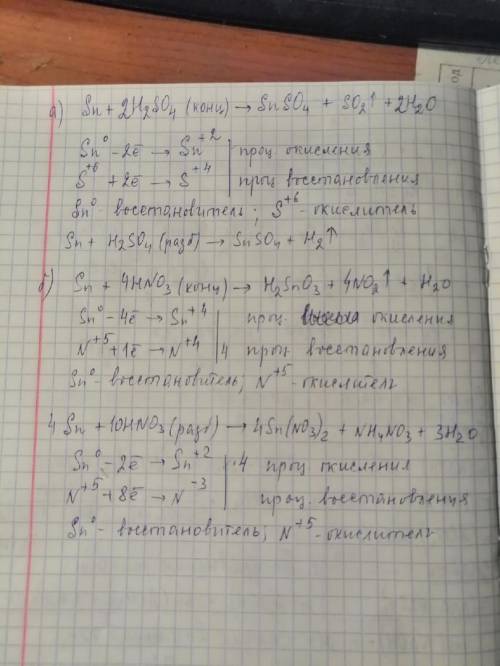 а) Sn + 2H₂SO₄ (конц) → SnSO₄ + SO₂↑ + 2H₂O
Sn⁰ - 2ē → Sn⁺² | проц окисления
S⁺⁶ + 2ē → S⁺⁴ | проц восстановления
Sn⁰ - восстановитель; S⁺⁶ - окислитель
Sn + H₂SO₄ (разб) → SnSO₄ + H₂↑
б) Sn + 4HNO₃ (конц) → H₂SnO₃ + 4NO₂↑ + H₂O
Sn⁰ - 4ē → Sn⁺⁴ | проц. окисления
N⁺⁵ + 1ē → N⁺⁴ | 4 проц восстановления
Sn⁰ - восстановитель; N⁺⁵ - окислитель
4Sn + 10HNO₃ (разб) → 4Sn(NO₃)₂ + NH₄NO₃ + 3H₂O
Sn⁰ - 2ē → Sn⁺² | ·4 проц окисления
N⁺⁵ + 8ē → N⁻³ | проц. восстановления
Sn⁰ - восстановитель; N⁺⁵ - окислитель